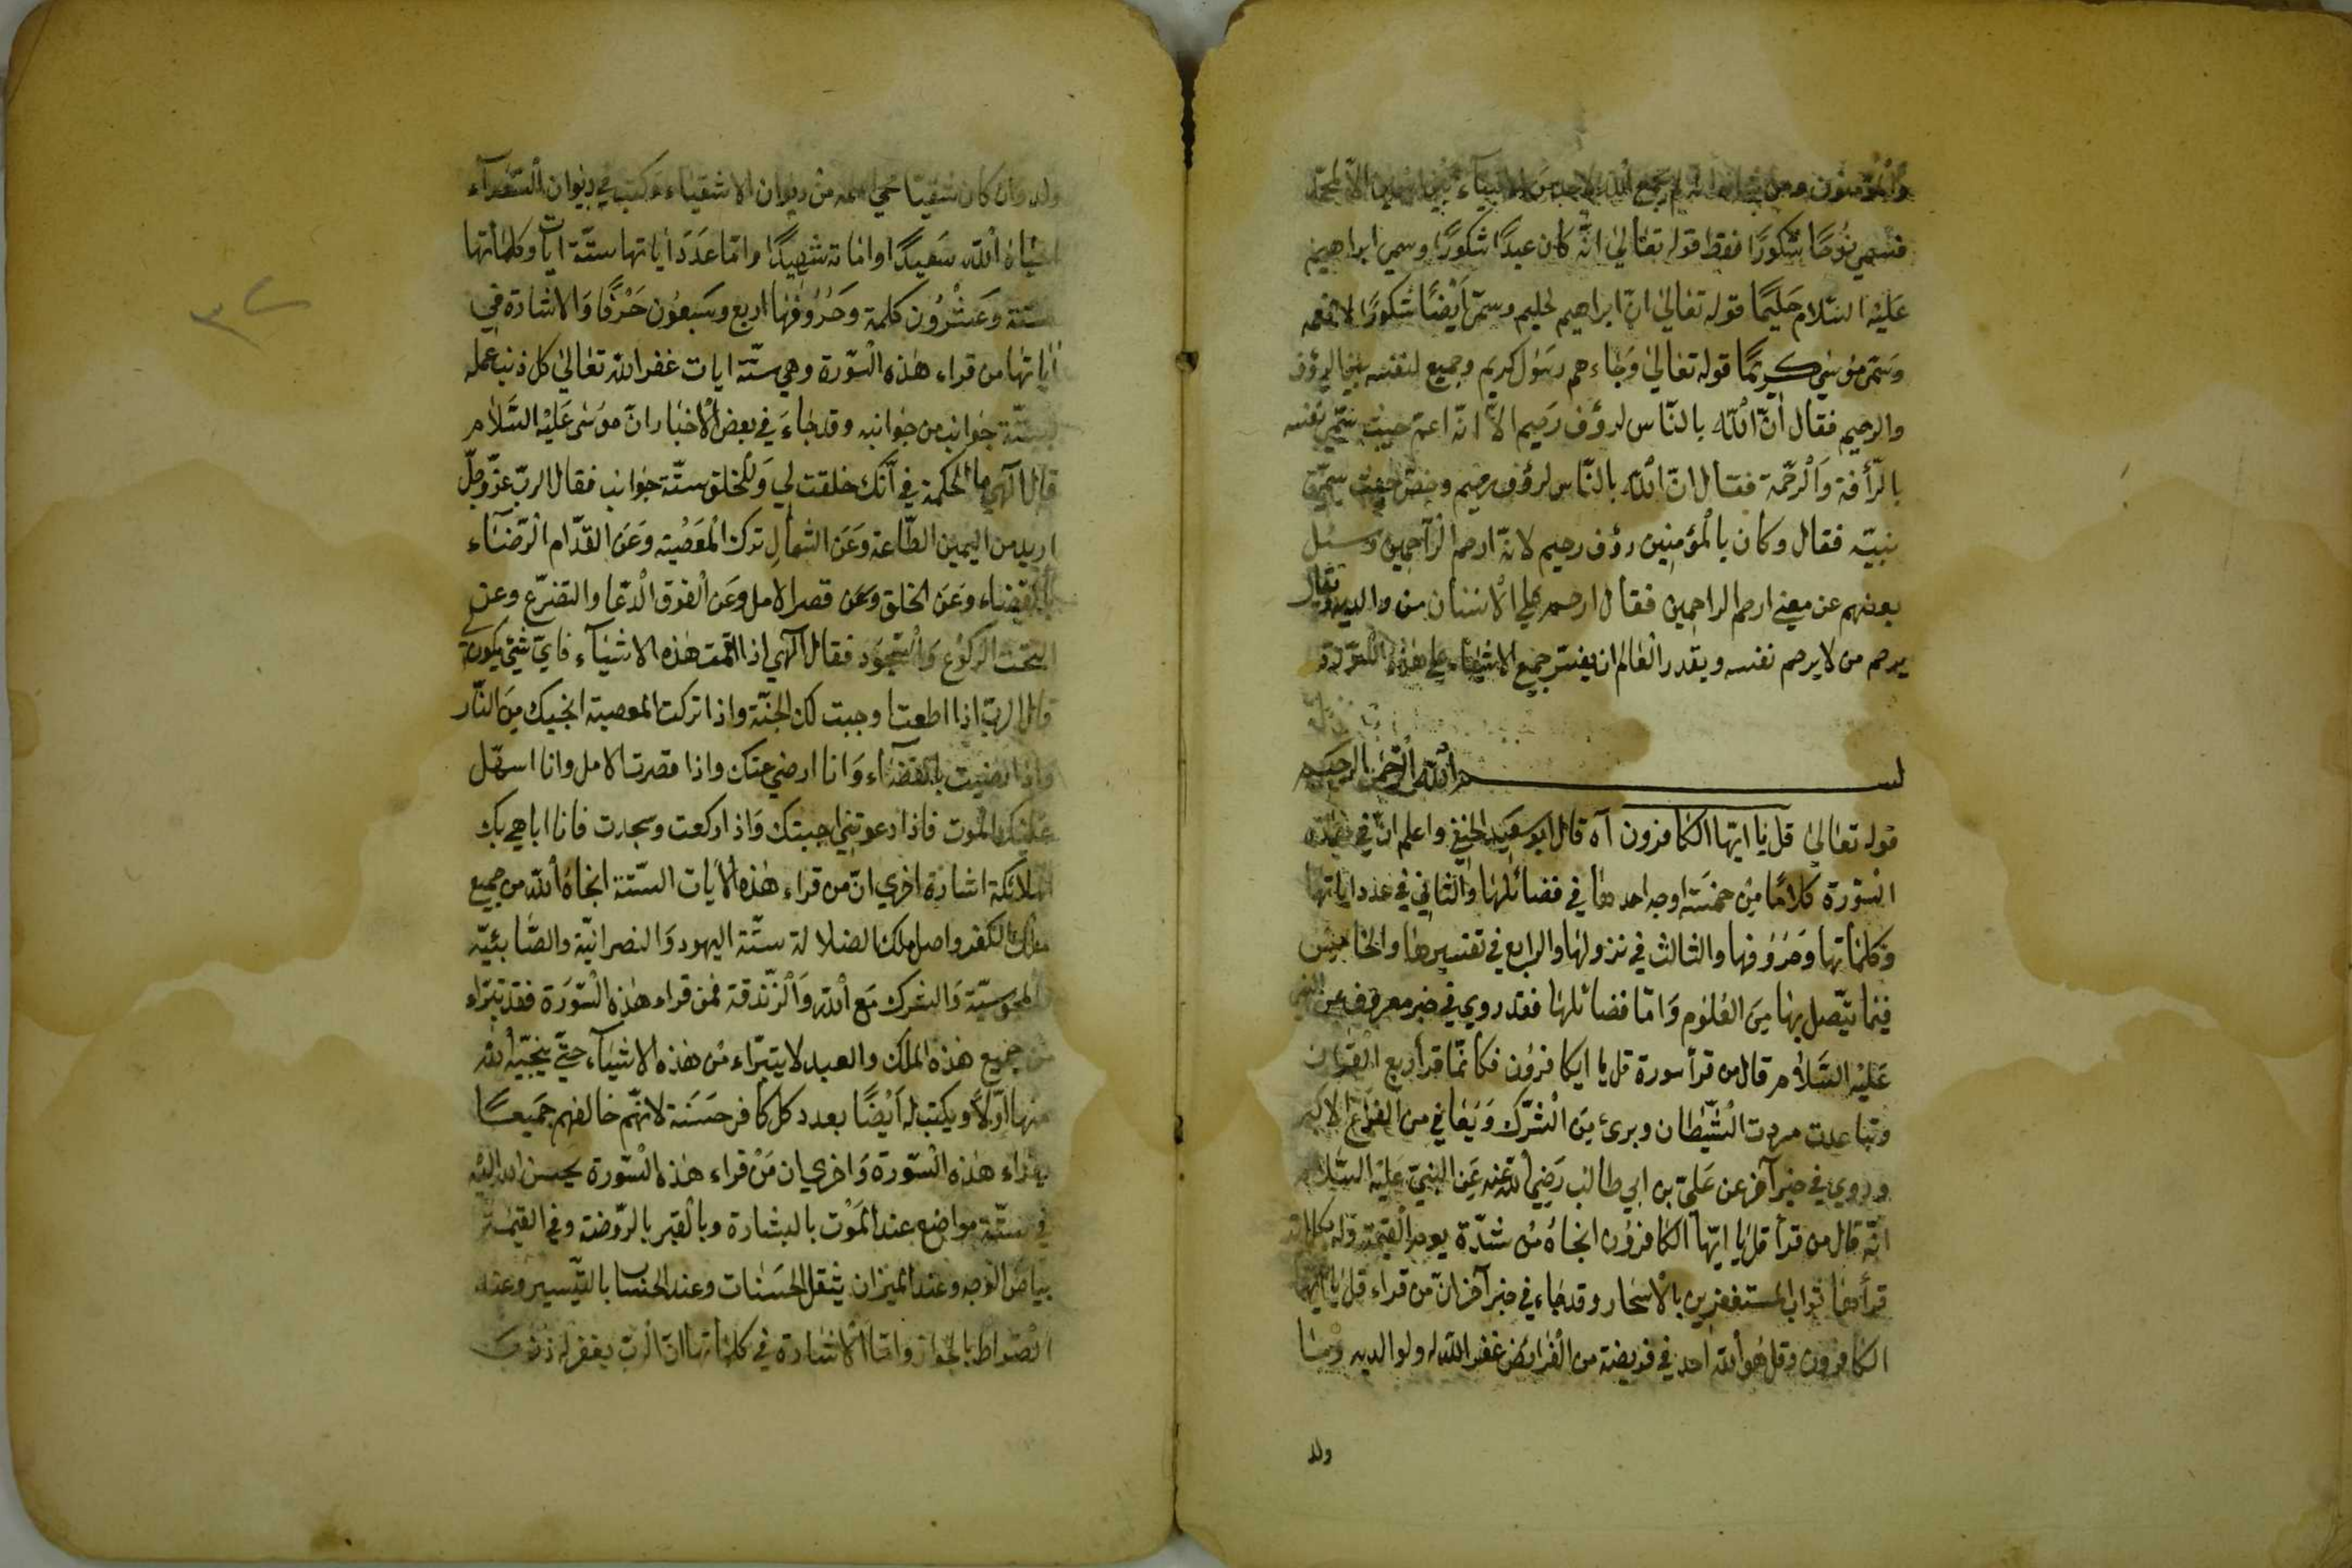 والمؤمنون ومن لم يجمع الله لاحد من الانبياء بين الا لمحمد
فسمي نوحًا شكورًا فقط قوله تعالى انّه كان عبدًا شكورًا وسمى ابراهيم
عليه السّلام حليمًا قوله تعالى انّ ابراهيم لحليم وسمّى ايضًا شكورًا لانعمه
وسمّى موسى كريمًا قوله تعالى وجاءهم رسول كريم وجميع لنفسه الرؤف
والرحيم فقال انّ الله بالنّاس لرؤف رحيم الّا انّه اعمّ حيث سمّى نفسه
بالرّأفة والرّحمة فقال انّ الله بالنّاس لرؤف رحيم وخصّ حيث سمّى
نبيّه فقال وكان بالمؤمنين رؤف رحيم لانّه ارحم الرّاحمين وسئل
بعضهم عن معنى ارحم الراحمين فقال ارحم على الانسان من والديه وقال
يرحم من لا يرحم نفسه ويقدر العالم ان يفسّر جميع الاشياء على هذه
بسم الله الرّحمن الرحيم
قوله تعالى قل يا ايّها الكافرون آه قال ابو سعيد الحنفي واعلم انّ في هذه
السّورة كلامًا من خمسة اوجه احدها في فضائلها والثاني في عدد اياتها
وكلماتها وحروفها والثالث في نزولها والرابع في تفسيرها والخامس
فيما يتّصل بها من العلوم وامّا فضائلها فقد روي في خبر معروف عن النبي
عليه السّلام قال من قرأ سورة قل يا ايكافرون فكانّما قرأ ربع القران
وتباعدت مردت الشّيطان وبرئ من الشّرك ويعافي من الفزع الاكبر
وروي في خبر آخر عن عليّ بن ابي طالب رضي الله عنه عن النبيّ عليه السّلام
انّه قال من قرأ قل يا ايّها الكافرون انجاه من شدّة يوم القيمة وله بكل اية
قرأها ثواب المستغفرين بالاسحار وقد جاء في خبر آخر انّ من قراء قل يا ايّها
الكافرون وقل هو الله احد في فريضة من الفرائض غفر الله له ولوالديه وما
ولد
ولد وان كان شقيّا محي اسمه من ديوان الاشقياء وكتب في ديوان السّعداء
احياه الله سعيدًا واماته شهيدًا وامّا عدد اياتها ستّة ايات وكلماتها
ستّة وعشرون كلمة وحروفها اربع وسبعون حرفًا والاشارة في
اياتها من قراء هذه السّورة وهي ستّة ايات غفر الله تعالى كل ذنب عمله
بستّة جوانب من جوانبه وقد جاء في بعض الاخبار انّ موسى عليه السّلام
قال الهي ما الحكمة في انّك خلقت لي وللخلق ستّة جوانب فقال الربّ عزّ وجلّ
اريد من اليمين الطّاعة وعن الشمال ترك المعصيته وعن القدّام الرّضاء
بالقضاء وعن الخلق وعن قصر الامل وعن الفوق الدّعا والتضرّع وعن
التحت الركوع والسّجود فقال الهي اذا اتممت هذه الاشياء فايّ شئ يكون
قال الربّ اذا اطعت وجبت لك الجنّة واذا تركت المعصيته انجيك من النّار
واذا رضيت بالقضاء وانا ارضي عنك واذا قصرت الامل وانا اسهّل
عليك الموت فاذا دعوتني اجبتك واذا ركعت وسجدت فانا اباهي بك
الملائكة اشارة اخري انّ من قراء هذه الايات الستّة انجاه الله من جميع
ملك الكفر واصل ملك الضلالة ستّة اليهود والنصرانيّة والصّابئيّه
والمجوسيّة والشرك مع الله والزّندقة فمن قراء هذه السّورة فقد تبرّاء
من جميع هذه الملك والعبد لا يتبرّاء من هذه الاشياء حتّى ينجّيه الله
منها اوّلًا ويكتب له ايضًا بعدد كل كافر حسنة لانّهم خالفهم جميعًا
بقراء هذه السّورة واخري ان من قراء هذه السّورة يحسن الله اليه
في ستّة مواضع عند الموت بالبشارة وبالقبر بالرّوضة وفي القيمة
بياض الوجه وعند الميزان يثقل الحسنات وعند الحساب بالتّيسير وعند
الصّراط بالجواز وامّا الاشارة في كلماتها انّ الربّ يغفر له ذنوب